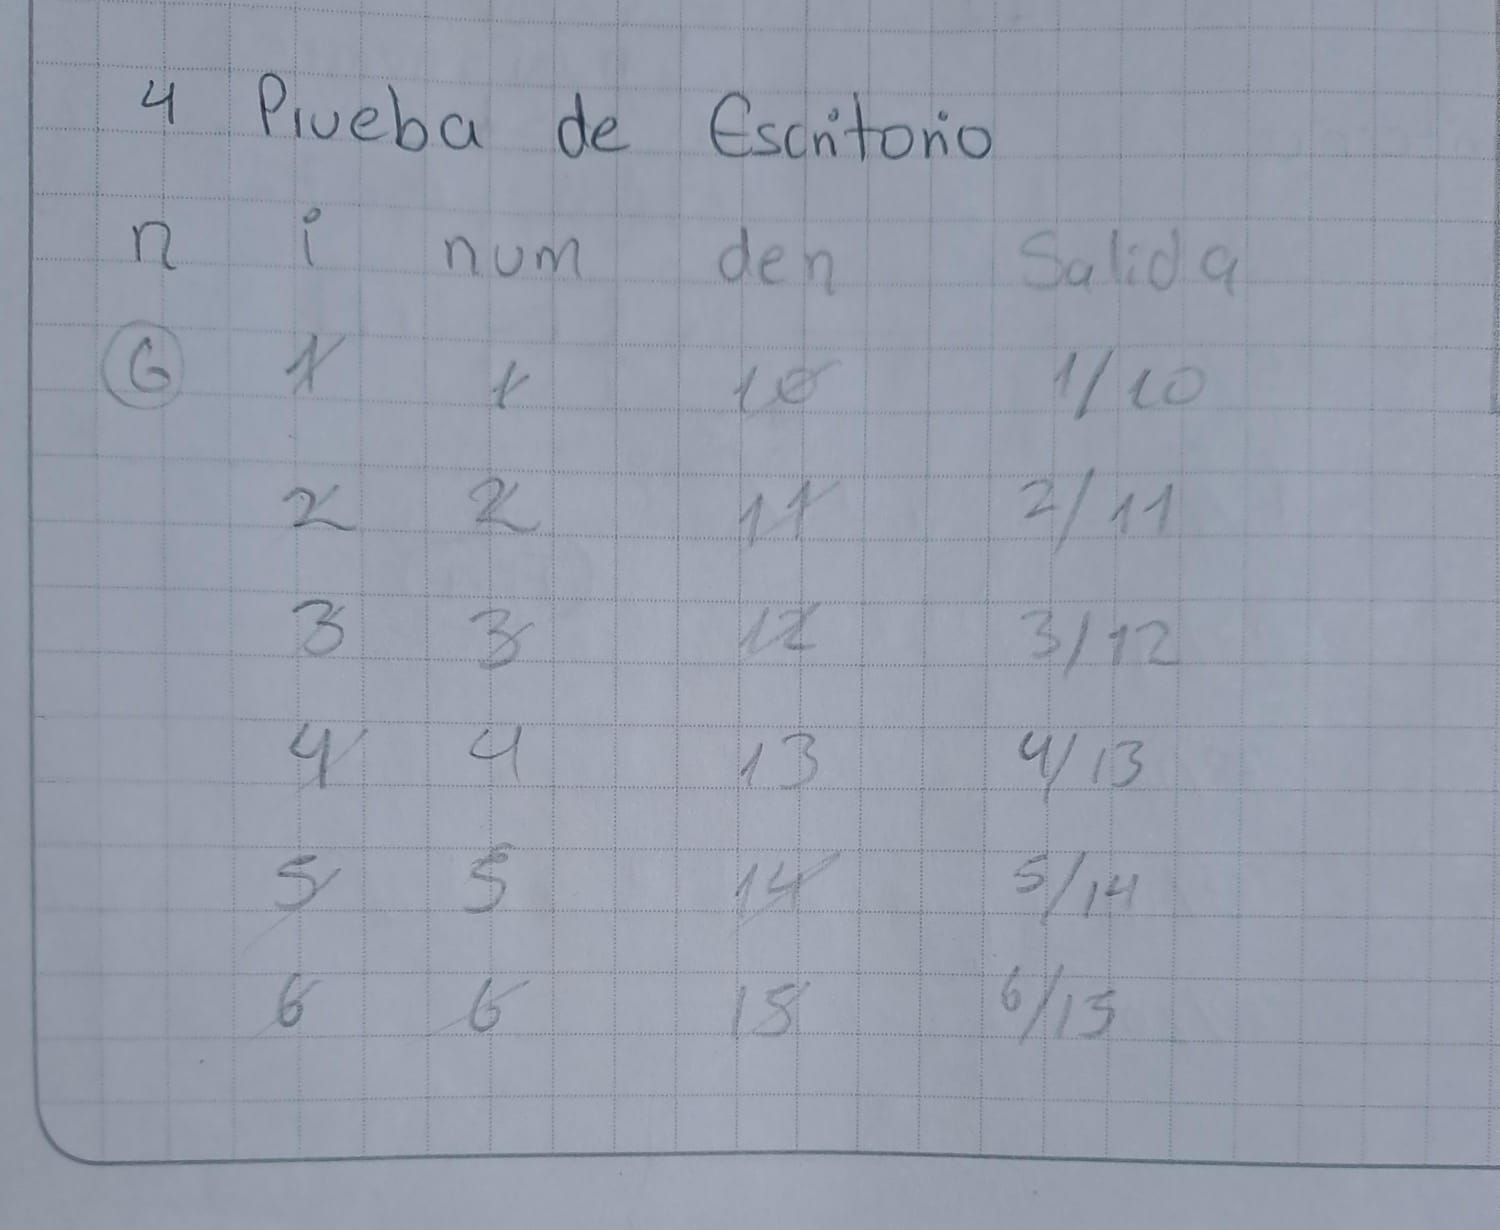 4 Prueba de Escritorio
n i num den Salida
6 1 1 10 1/10
2 2 11 2/11
3 3 12 3/12
4 4 13 4/13
5 5 14 5/14
6 6 15 6/15